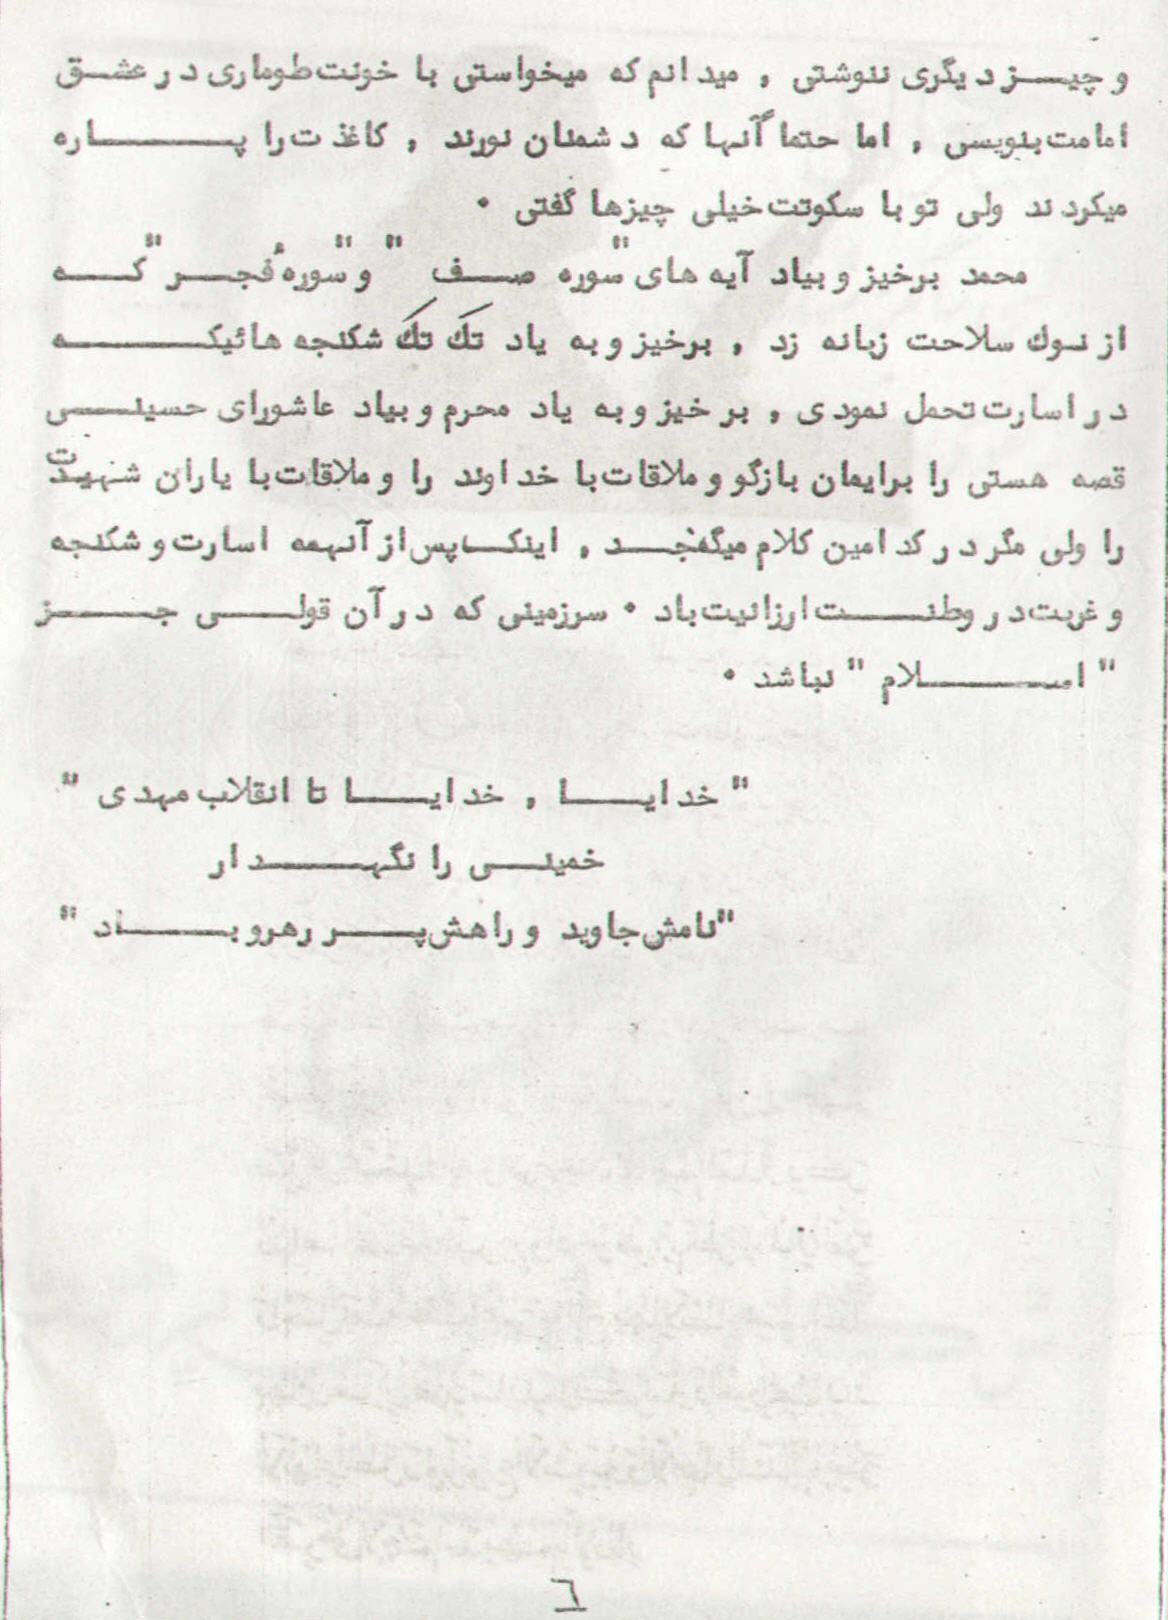 و چیز دیگری ننوشتی , میدانم که میخواستی با خونت طوماری در عشق
امامت بنویسی , اما حتما آنها که دشمنان نورند , کاغذت را پاره
میکردند ولی تو با سکوتت خیلی چیزها گفتی .
محمد برخیز و بیاد آیه های "سوره صف" و "سورهٔ فجر" که
از نوك سلاحت زبانه زد , برخیز و به یاد تك تك شکنجه هائیکه
در اسارت تحمل نمودی , برخیز و به یاد محرم و بیاد عاشورای حسینی
قصه هستی را برایمان بازگو و ملاقات با خداوند را و ملاقات با یاران شهیدت
را ولی مگر در کدامین کلام میگنجد , اینک پس از آنهمه اسارت و شکنجه
و غربت در وطنت ارزانیت باد . سرزمینی که در آن قولی جز
" اسلام " نباشد .
" خدایا , خدایا تا انقلاب مهدی "
خمینی را نگهدار
"نامش جاوید و راهش پر رهرو باد "
٦